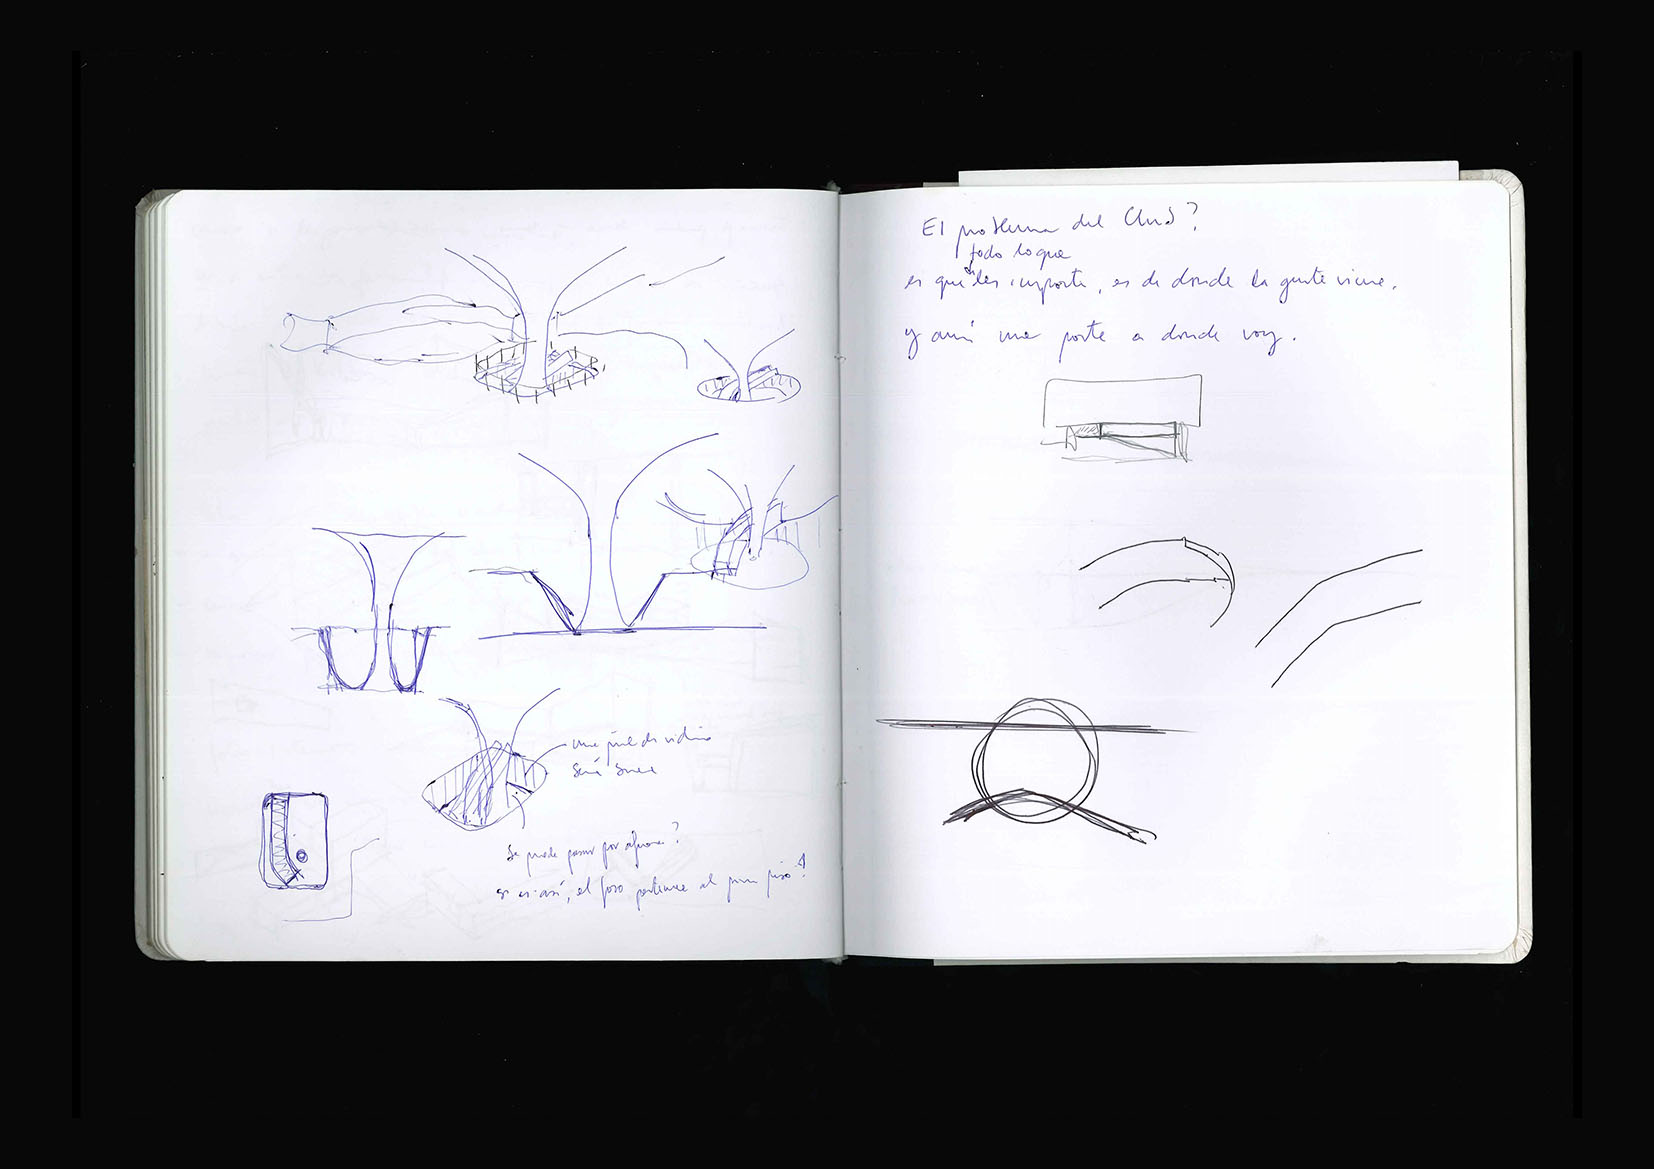 Será
Se puede pasar por afuera?
si es así, el foso pertenece al primer piso?!
El problema del Club?
todo lo que
es que les importa, es de donde la gente viene.
y a mi me porte a donde voy.